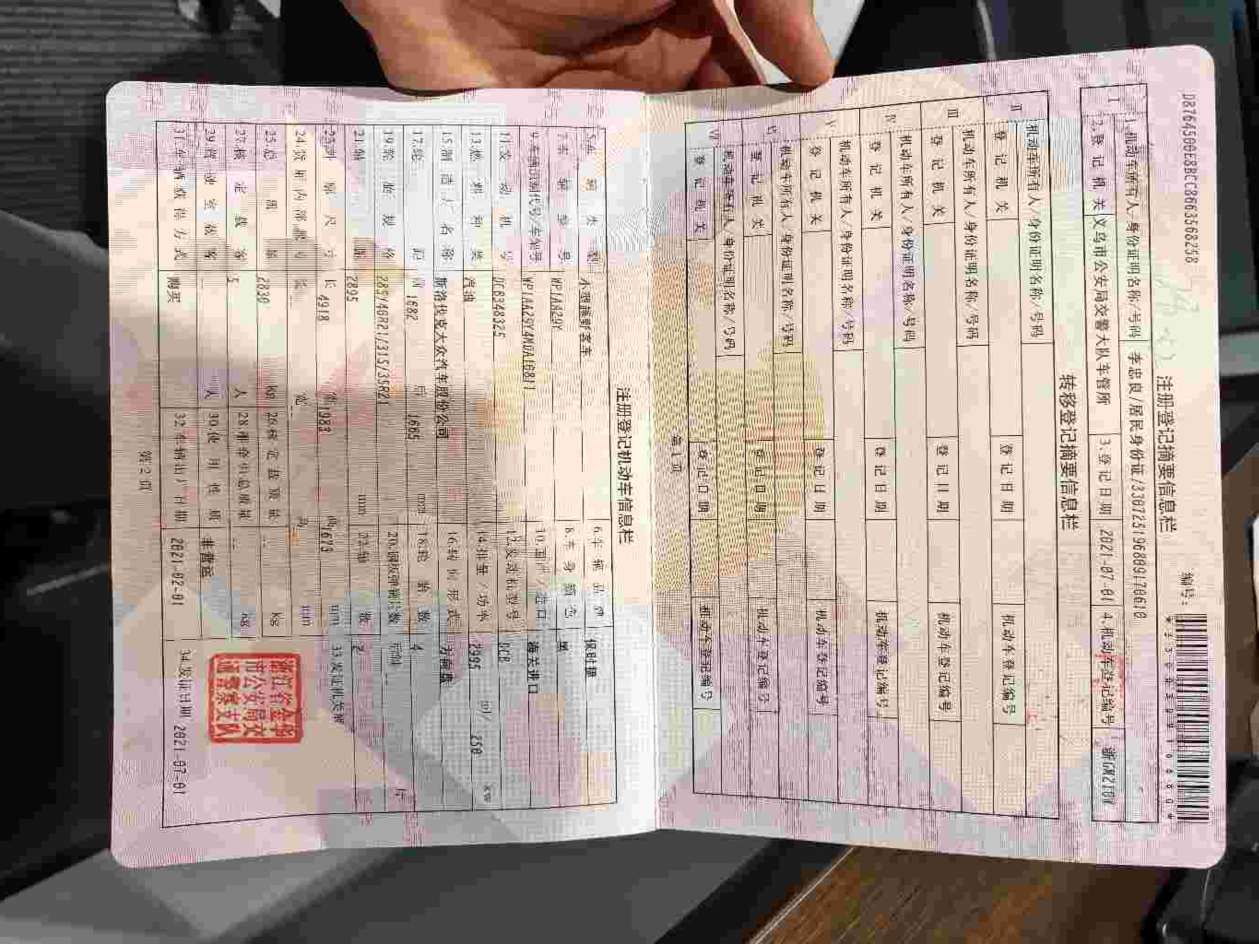 注册登记摘要信息栏
编号:
I
1.机动车所有人/身份证明名称/号码 李忠良/居民身份证/330725196809170610
2.登记机关 义乌市公安局交警大队车管所 3.登记日期 2021-07-01 4.机动车登记编号
转移登记摘要信息栏
II 机动车所有人/身份证明名称/号码
登记机关 登记日期 机动车登记编号
III 机动车所有人/身份证明名称/号码
登记机关 登记日期 机动车登记编号
IV 机动车所有人/身份证明名称/号码
登记机关 登记日期 机动车登记编号
V 机动车所有人/身份证明名称/号码
登记机关 登记日期 机动车登记编号
VI 机动车所有人/身份证明名称/号码
登记机关 登记日期 机动车登记编号
VII 机动车所有人/身份证明名称/号码
登记机关 登记日期 机动车登记编号
第1页
注册登记机动车信息栏
5.车辆类型 小型越野客车 6.车辆品牌 保时捷
7.车辆型号 WP1AA29Y 8.车身颜色 黑
9.车辆识别代号/车架号 10.国产/进口 海关进口
11.发动机号 DCB348325 12.发动机型号 DCB
13.燃料种类 汽油 14.排量/功率 2995 ml/ 250 kw
15.制造厂名称 斯洛伐克大众汽车股份公司 16.转向形式 方向盘
17.轮距 前 1682 后 1665 mm 18.轮胎数 4
19.轮胎规格 285/40R21/315/35R21 20.钢板弹簧片数 后轴 -- 片
21.轴距 2895 mm 22.轴数 2
23.外廓尺寸 长 4918 宽 1983 高 1673 mm 33.发证机关章
24.货厢内部尺寸 长 -- 宽 -- 高 -- mm
25.总质量 2830 kg 26.核定载质量 -- kg
27.核定载客 5 人 28.准牵引总质量 -- kg
29.驾驶室载客 -- 人 30.使用性质 非营运
31.车辆获得方式 购买 32.车辆出厂日期 2021-02-01 34.发证日期 2021-07-01
浙江省金华
市公安局交
通警察支队
第2页